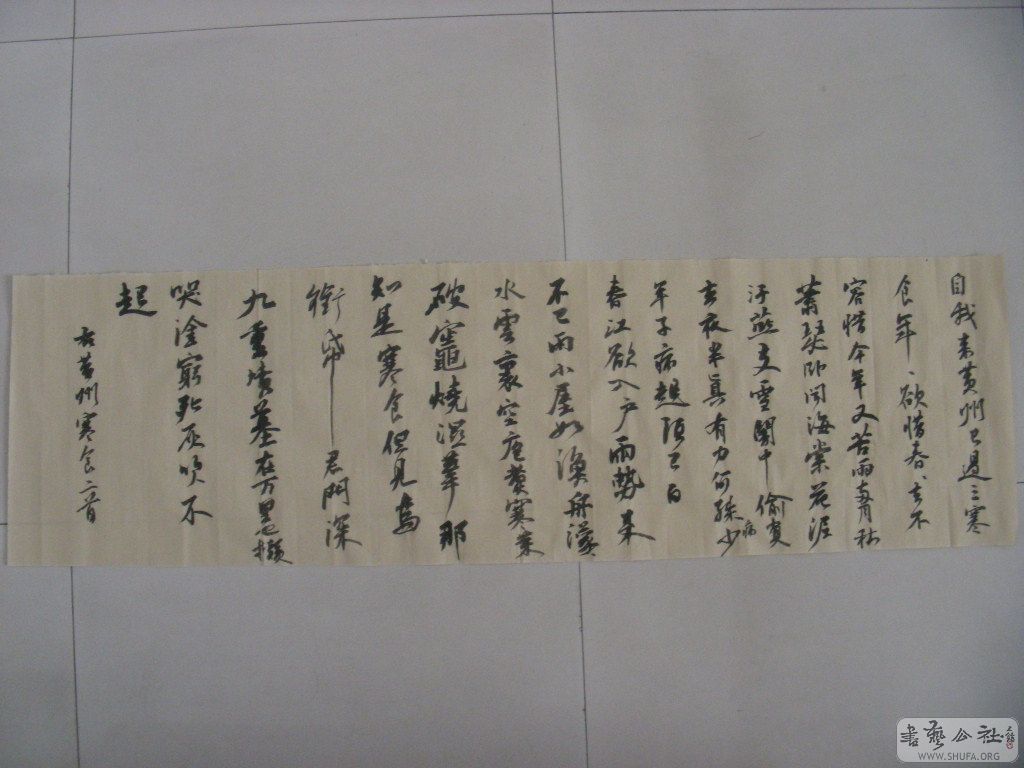 自我来黄州已過三寒
食年、欲惜春、去不
容惜今年又苦雨兩月秋
蕭瑟卧聞海棠花泥
汙燕支雪闇中偷負
去夜半真有力何殊少
病
年子病起須已白
春江欲入户雨勢来
不已雨小屋如漁舟濛
水雲裏空庖煑寒菜
破竈燒濕葦那
知是寒食但見烏
銜帋君門深
九重墳墓在万里也擬
哭塗窮死灰吹不
起
右黄州寒食二首
書藝公社
WWW.SHUFA.ORG